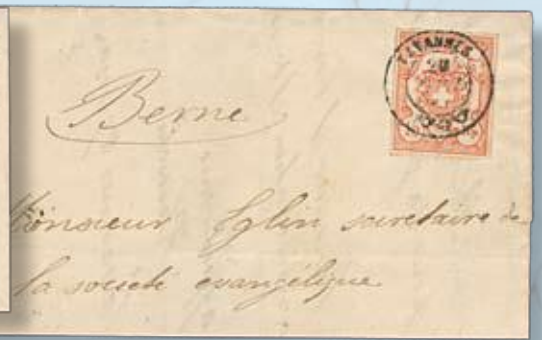 TAVANNES
Berne
Monsieur Eglin secretaire de
la societé evangélique